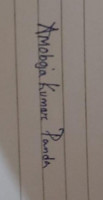 Amboja Kumar Panda